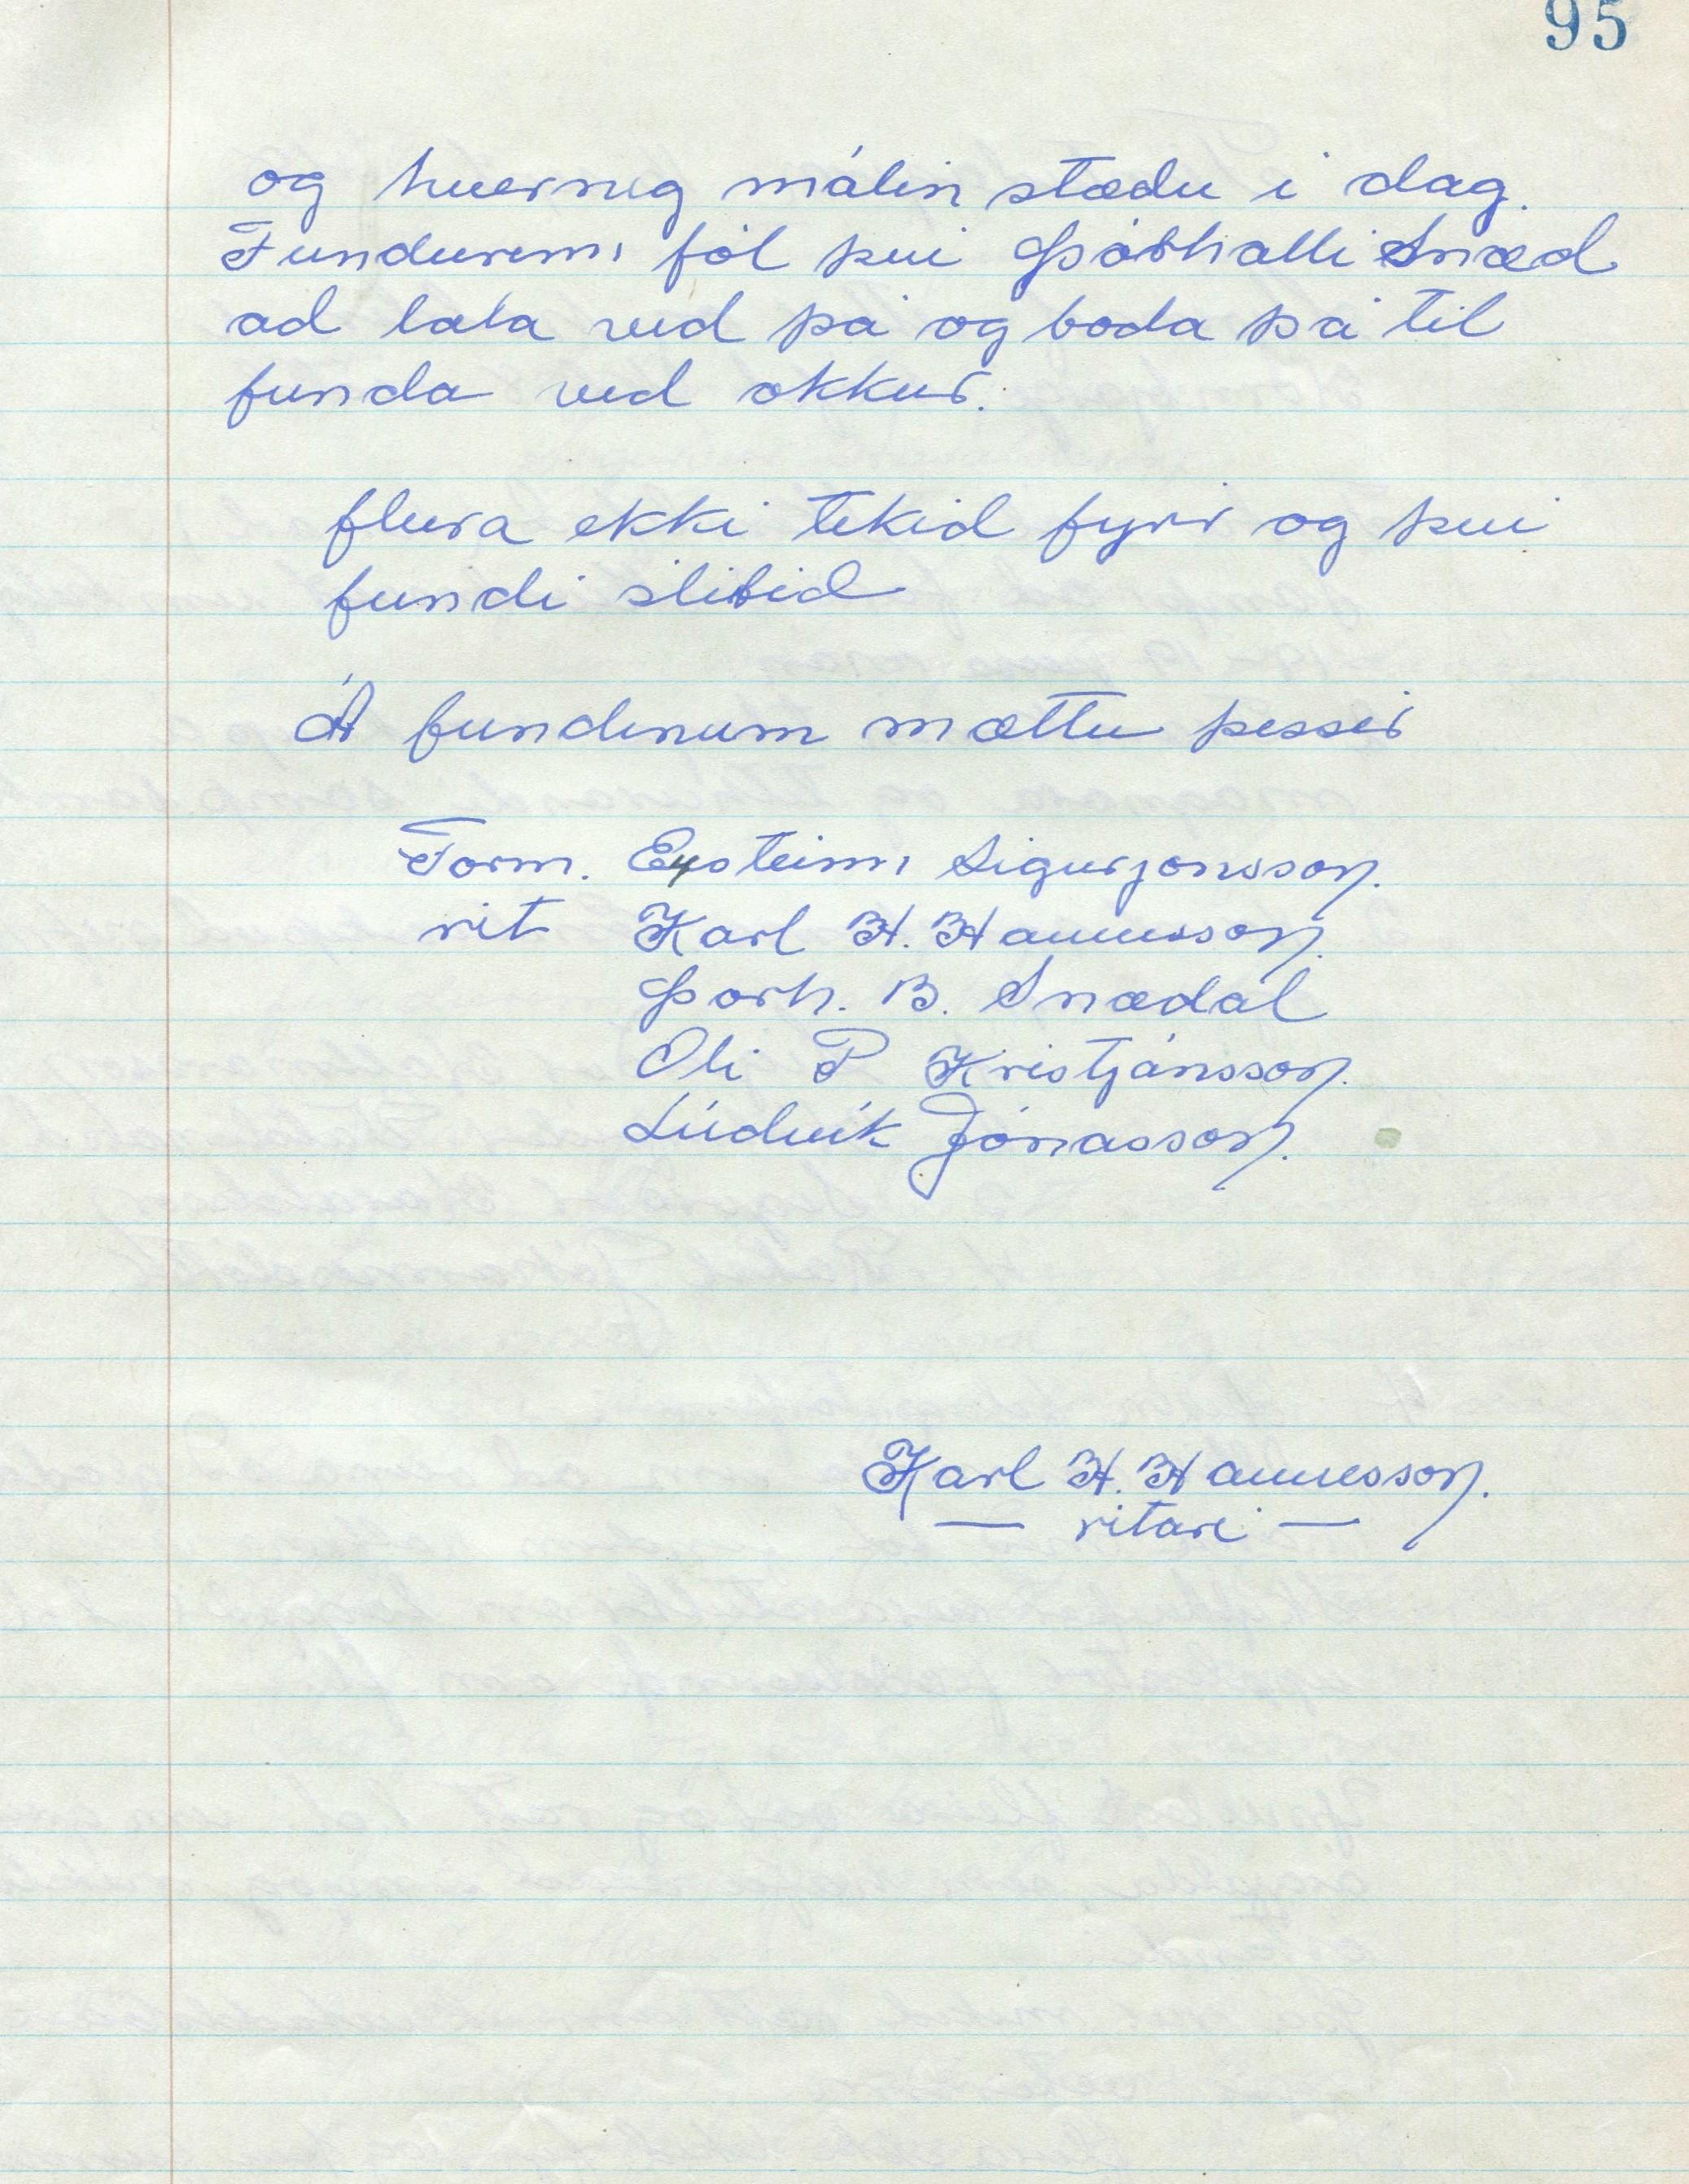 95
og hvernig málin stædu i dag.
Fundurinn fól þvi Þórhalli Snæd
ad tala vid þá og boda þá til
funda vid okkur.
fleira ekki tekid fyrir og þvi
fundi slitid
Á fundinum mættu þessir
Form. Eysteinn Sigurjonsson.
rit Karl H. Hannesson.
Þorh. B. Snædal
Oli P Kristjánsson.
Lúdvík Jónasson.
Karl H. Hannesson.
— ritari —